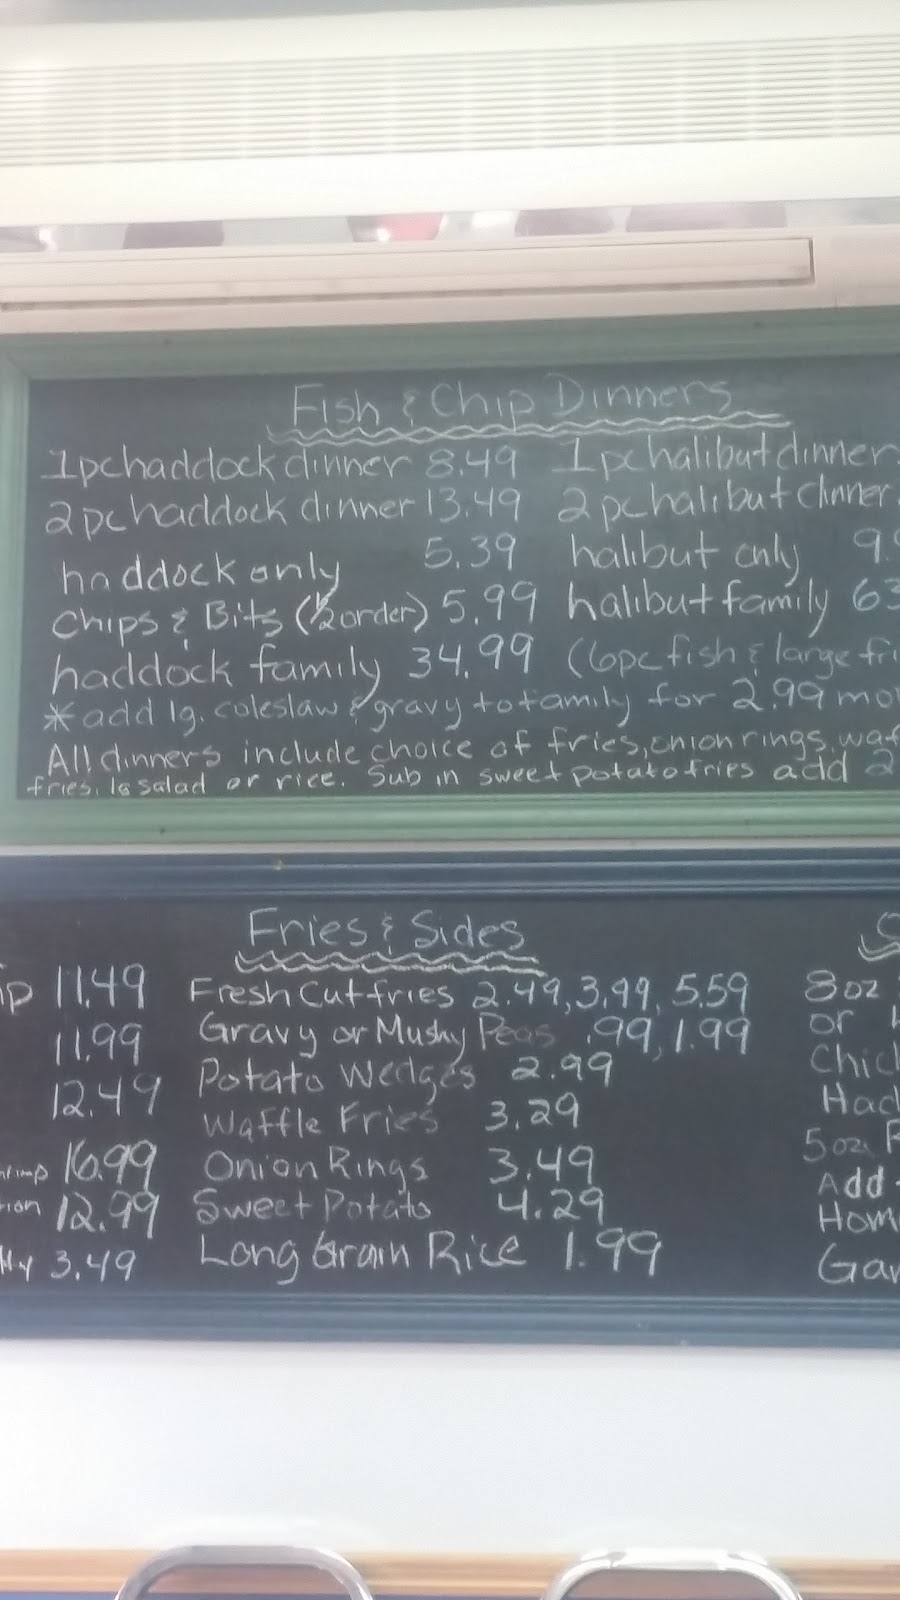 Fish & Chip Dinners
1pc haddock dinner 8.49 1pc halibut dinner
2pc haddock dinner 13.49 2pc halibut dinner
haddock only 5.39 halibut only 9.9
Chips & Bits (½ order) 5.99 halibut family 63
haddock family 34.99 (6pc fish & large fri
* add lg. coleslaw & gravy to family for 2.99 mo
All dinners include choice of fries, onion rings, waf
fries, lg salad or rice. Sub in sweet potato fries add 2
Fries & Sides
ip 11.49 Fresh Cut fries 2.49, 3.99, 5.59 8oz
11.99 Gravy or Mushy Peas .99, 1.99 or
12.49 Potato Wedges 2.99 Chic
Waffle Fries 3.29 Had
16.99 Onion Rings 3.49 5oz
12.99 Sweet Potato 4.29 Add
3.49 Long Grain Rice 1.99 Hom
Gar